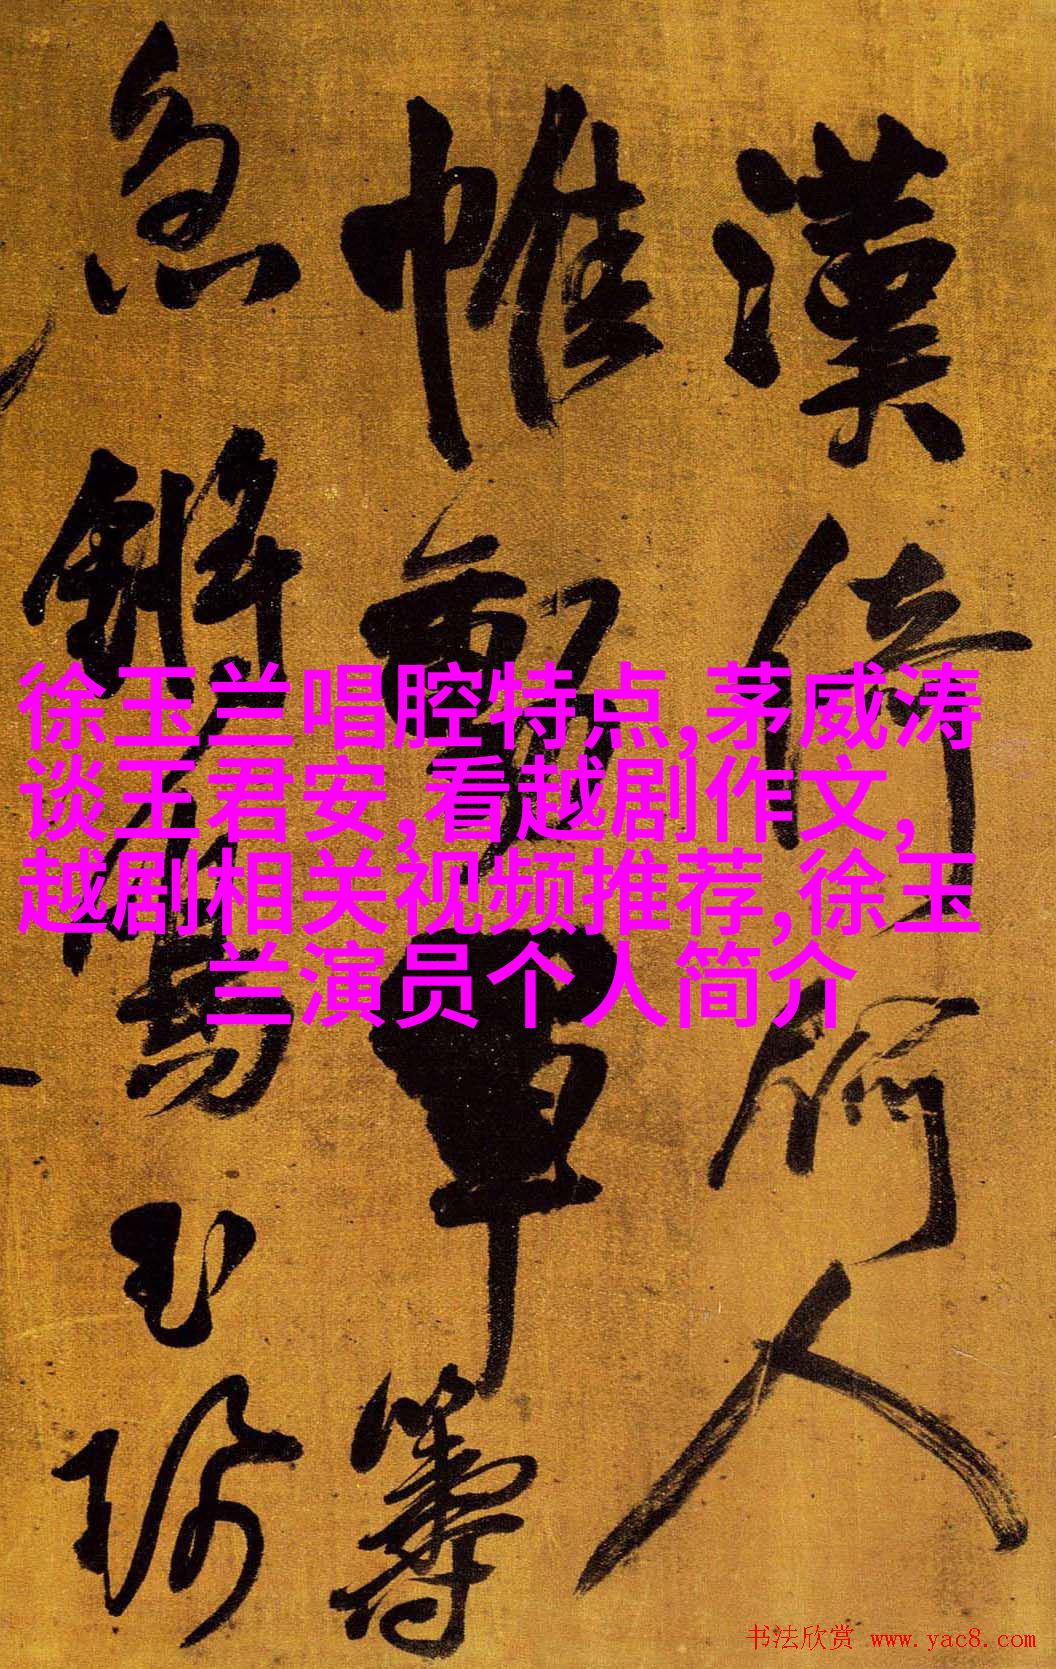 漢倚何人
帷軍籌
急鏘馬玉珂
徐玉兰唱腔特点,茅威涛
谈王君安,看越剧作文,
越剧相关视频推荐,徐玉
兰演员个人简介
书法欣赏 www.yac8.com